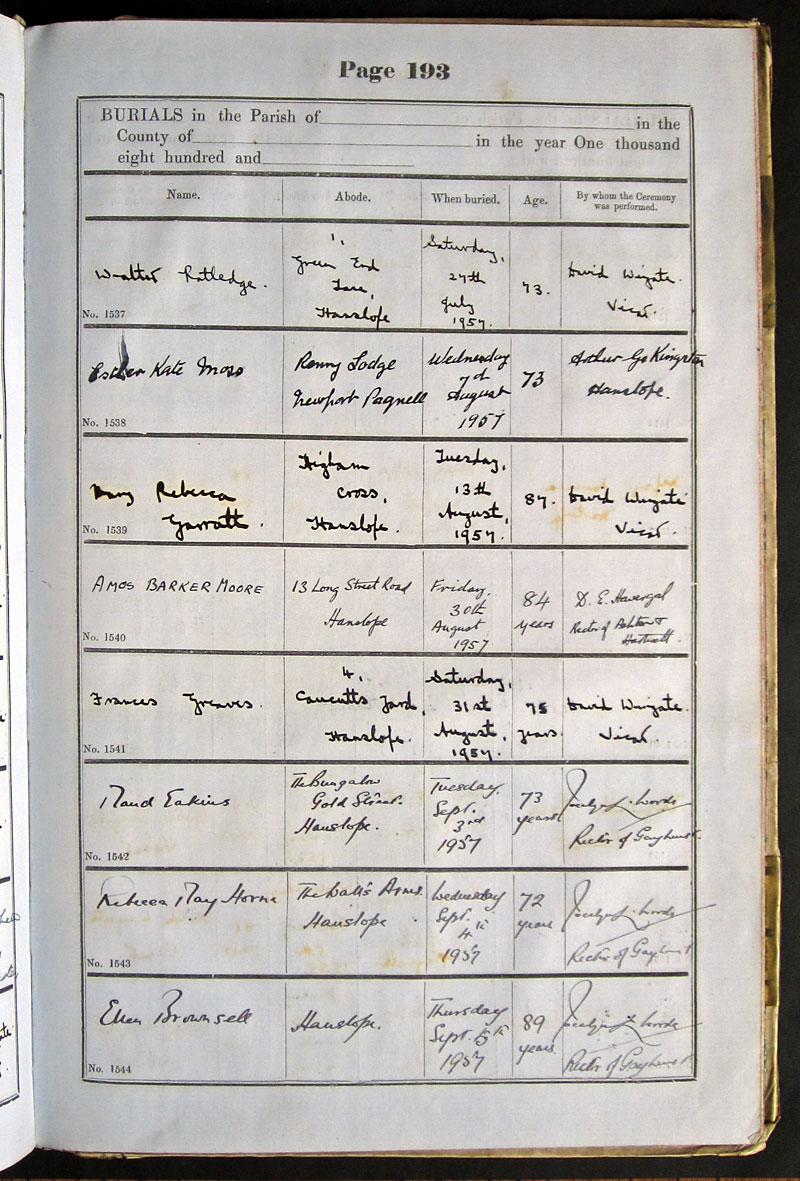 Page 193
BURIALS in the Parish of in the
County of in the year One thousand
eight hundred and
Name. Abode. When buried. Age. By whom the Ceremony was performed.
Walter Ratledge.
No. 1537
1,
Green End
Lane,
Hanslope
Saturday,
27th
July
1957.
73.
David Wingate.
Vicar.
Esther Kate Moss
No. 1538
Renny Lodge
Newport Pagnell
Wednesday
7th
August
1957
73
Arthur Kingston
Hanslope.
Mary Rebecca
Garratt.
No. 1539
Higham
Cross,
Hanslope.
Tuesday,
13th
August,
1957.
87.
David Wingate
Vicar.
AMOS BARKER MOORE
No. 1540
13 Long Street Road
Hanslope
Friday.
30th
August
1957
84
years
D. E. Havergal
Rector of Ashton &
Hartwell.
Frances Greaves.
No. 1541
4,
Yard,
Hanslope.
Saturday,
31st
August,
1957.
75
years.
David Wingate.
Vicar.
Maud Eakins
No. 1542
The Bungalow
Gold Street.
Hanslope.
Tuesday.
Sept.
3rd
1957
73
years
Rector of Gayhurst.
Rebecca May Horne
No. 1543
The Watts Arms.
Hanslope
Wednesday
Sept.
4th
1957
72
years
Rector of Gayhurst
Ellen Brownsell
No. 1544
Hanslope.
Thursday
Sept. 5th
1957
89
years.
Rector of Gayhurst